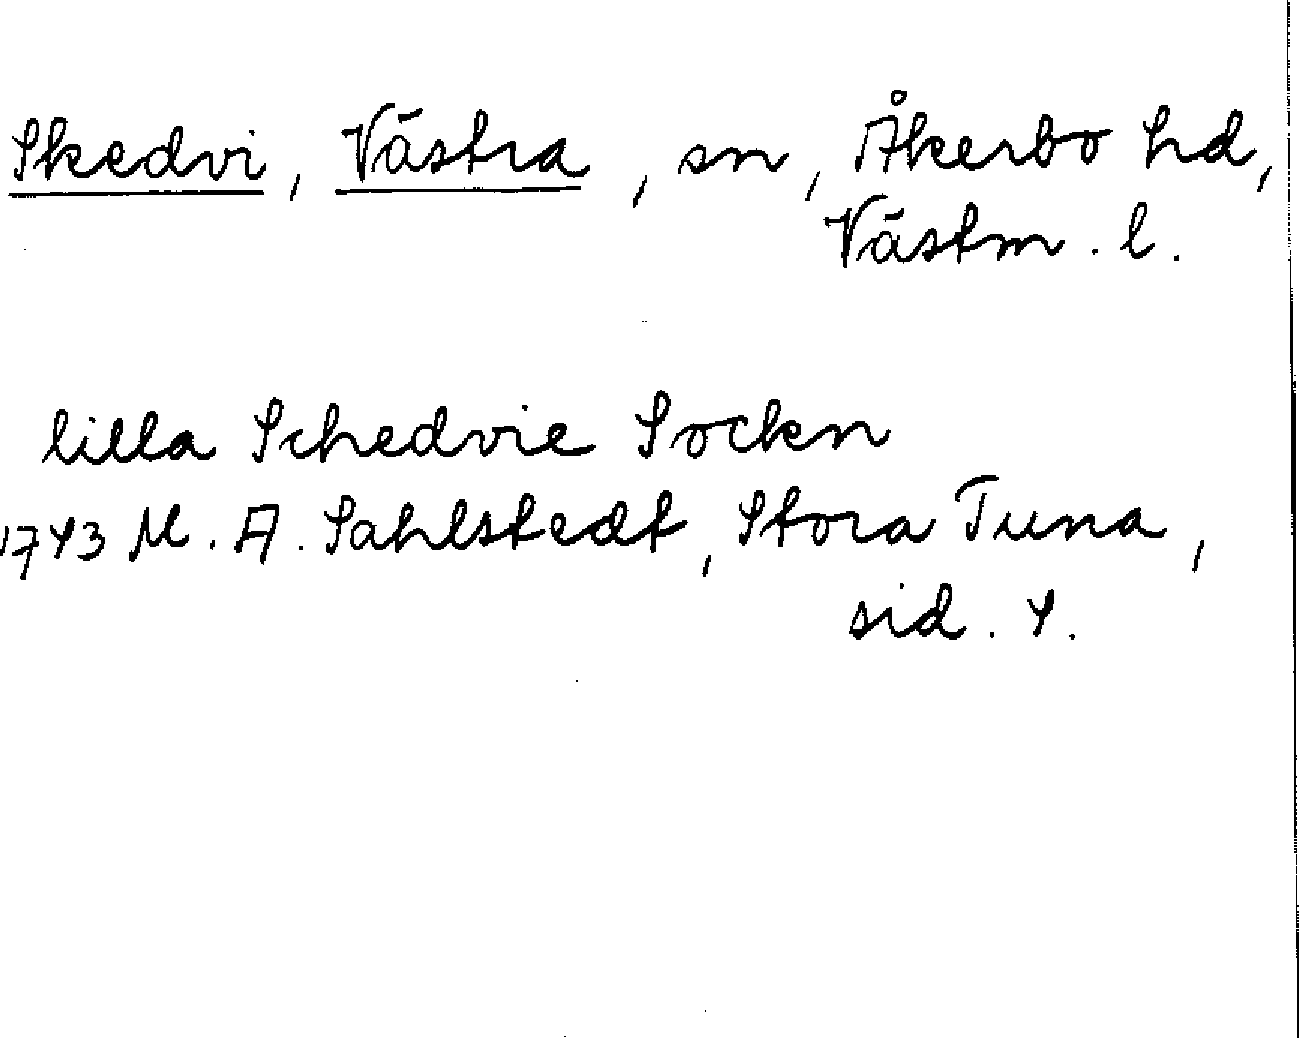 Skedvi, Västra, sn, Åkerbo hd,
Västm. l.
lilla Schedvie Sockn
1743 M. A. Sahlstedt, Stora Tuna,
sid. 4.